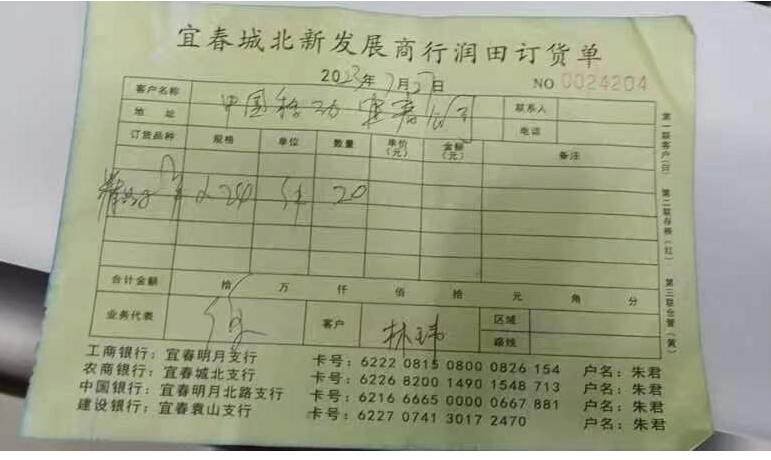 宜春城北新发展商行润田订货单
2023年7月27日 NO 0024204
客户名称 中国移动宜春公司 联系人
地址 电话
订货品种 规格 单位 数量 单价(元) 金额(元) 备注
20
合计金额 拾 万 仟 佰 拾 元 角 分
业务代表 客户 林玮 区域
路线
工商银行：宜春明月支行 卡号：6222 0815 0800 0826 154 户名：朱君
农商银行：宜春城北支行 卡号：6226 8200 1490 1548 713 户名：朱君
中国银行：宜春明月北路支行 卡号：6216 6665 0000 0667 881 户名：朱君
建设银行：宜春袁山支行 卡号：6227 0741 3017 2470 户名：朱君
第一联客户(白) 第二联存根(红) 第三联仓管(黄)